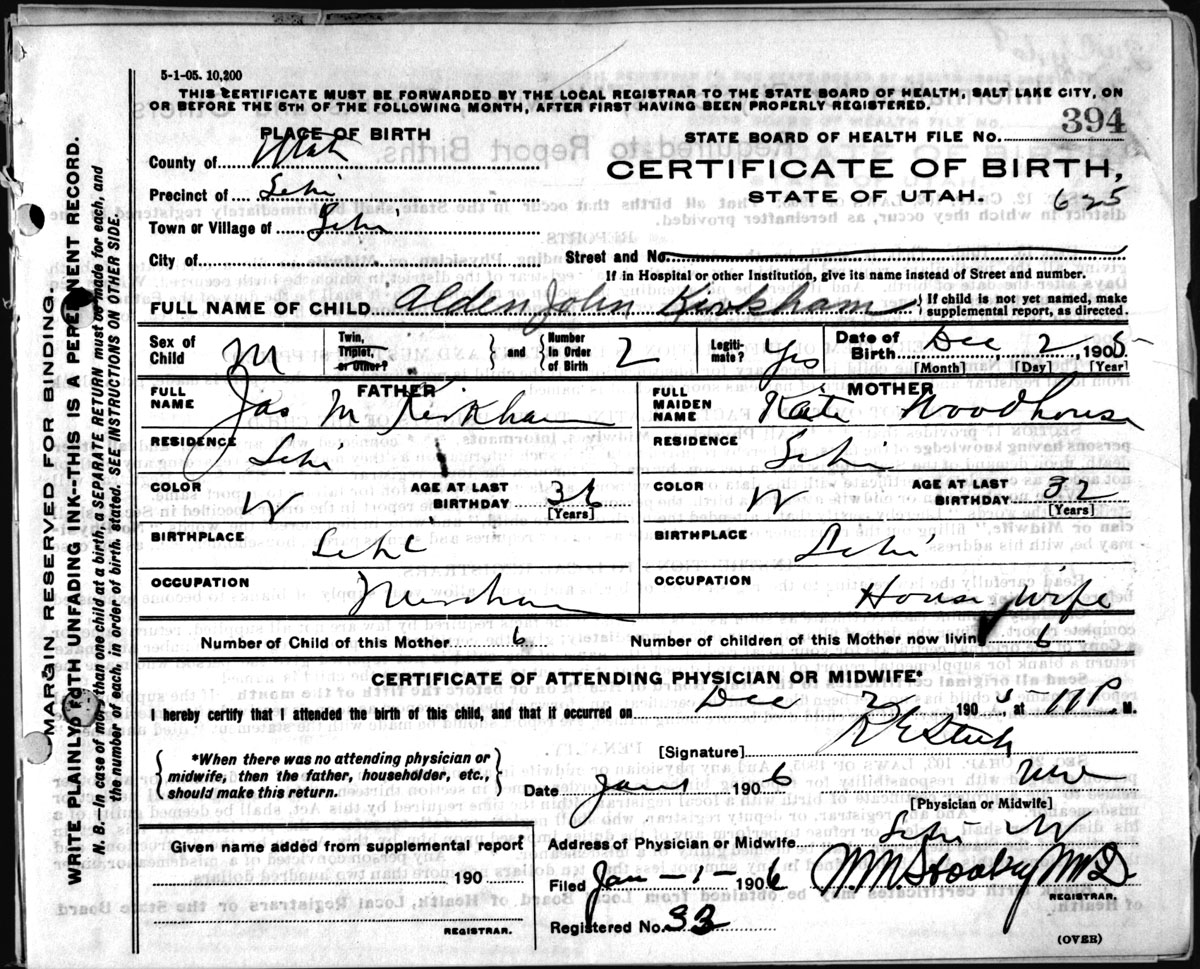 5-1-05. 10,200
THIS CERTIFICATE MUST BE FORWARDED BY THE LOCAL REGISTRAR TO THE STATE BOARD OF HEALTH, SALT LAKE CITY, ON
OR BEFORE THE 5TH OF THE FOLLOWING MONTH, AFTER FIRST HAVING BEEN PROPERLY REGISTERED.
PLACE OF BIRTH
STATE BOARD OF HEALTH FILE NO. 394
County of Utah
CERTIFICATE OF BIRTH,
Precinct of Lehi
STATE OF UTAH. 625
Town or Village of Lehi
City of
Street and No.
If in Hospital or other Institution, give its name instead of Street and number.
FULL NAME OF CHILD Alden John Kirkham { If child is not yet named, make supplemental report, as directed.
Sex of Child M Twin, Triplet, or Other? } and { Number in Order of Birth 2 Legitimate? Yes Date of Birth Dec 2 1905
[Month] [Day] [Year]
FATHER
FULL NAME Jas M Kirkham
MOTHER
FULL MAIDEN NAME Kate Woodhouse
RESIDENCE Lehi
RESIDENCE Lehi
COLOR W AGE AT LAST BIRTHDAY 36 [Years]
COLOR W AGE AT LAST BIRTHDAY 32 [Years]
BIRTHPLACE Lehi
BIRTHPLACE Lehi
OCCUPATION
OCCUPATION House Wife
Number of Child of this Mother 6
Number of children of this Mother now living 6
CERTIFICATE OF ATTENDING PHYSICIAN OR MIDWIFE*
I hereby certify that I attended the birth of this child, and that it occurred on Dec 2 1905, at 11 P. M.
*When there was no attending physician or
midwife, then the father, householder, etc.,
should make this return.
[Signature]
Date Jan 1 1906
[Physician or Midwife]
Given name added from supplemental report
190
REGISTRAR.
Address of Physician or Midwife Lehi
Filed Jan - 1 - 1906
REGISTRAR.
Registered No. 33
(OVER)
MARGIN RESERVED FOR BINDING.
WRITE PLAINLY WITH UNFADING INK--THIS IS A PERMENENT RECORD.
N. B.--In case of more than one child at a birth, a SEPARATE RETURN must be made for each, and
the number of each, in order of birth, stated. SEE INSTRUCTIONS ON OTHER SIDE.